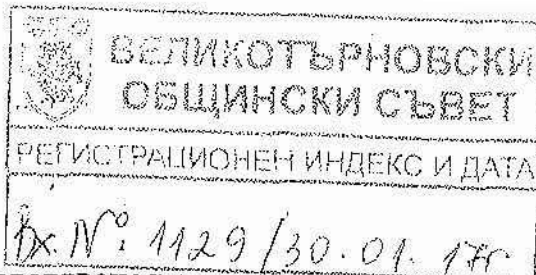 ВЕЛИКОТЪРНОВСКИ
ОБЩИНСКИ СЪВЕТ
РЕГИСТРАЦИОНЕН ИНДЕКС И ДАТА
Вх. №: 1129/30.01.17г